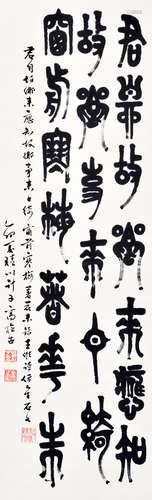 君自故鄉來應知
故鄉事來日綺
窗前寒梅著花未
君自故鄉來應知故鄉事來日綺窗前寒梅著花未錄王維詩
乙卯夏